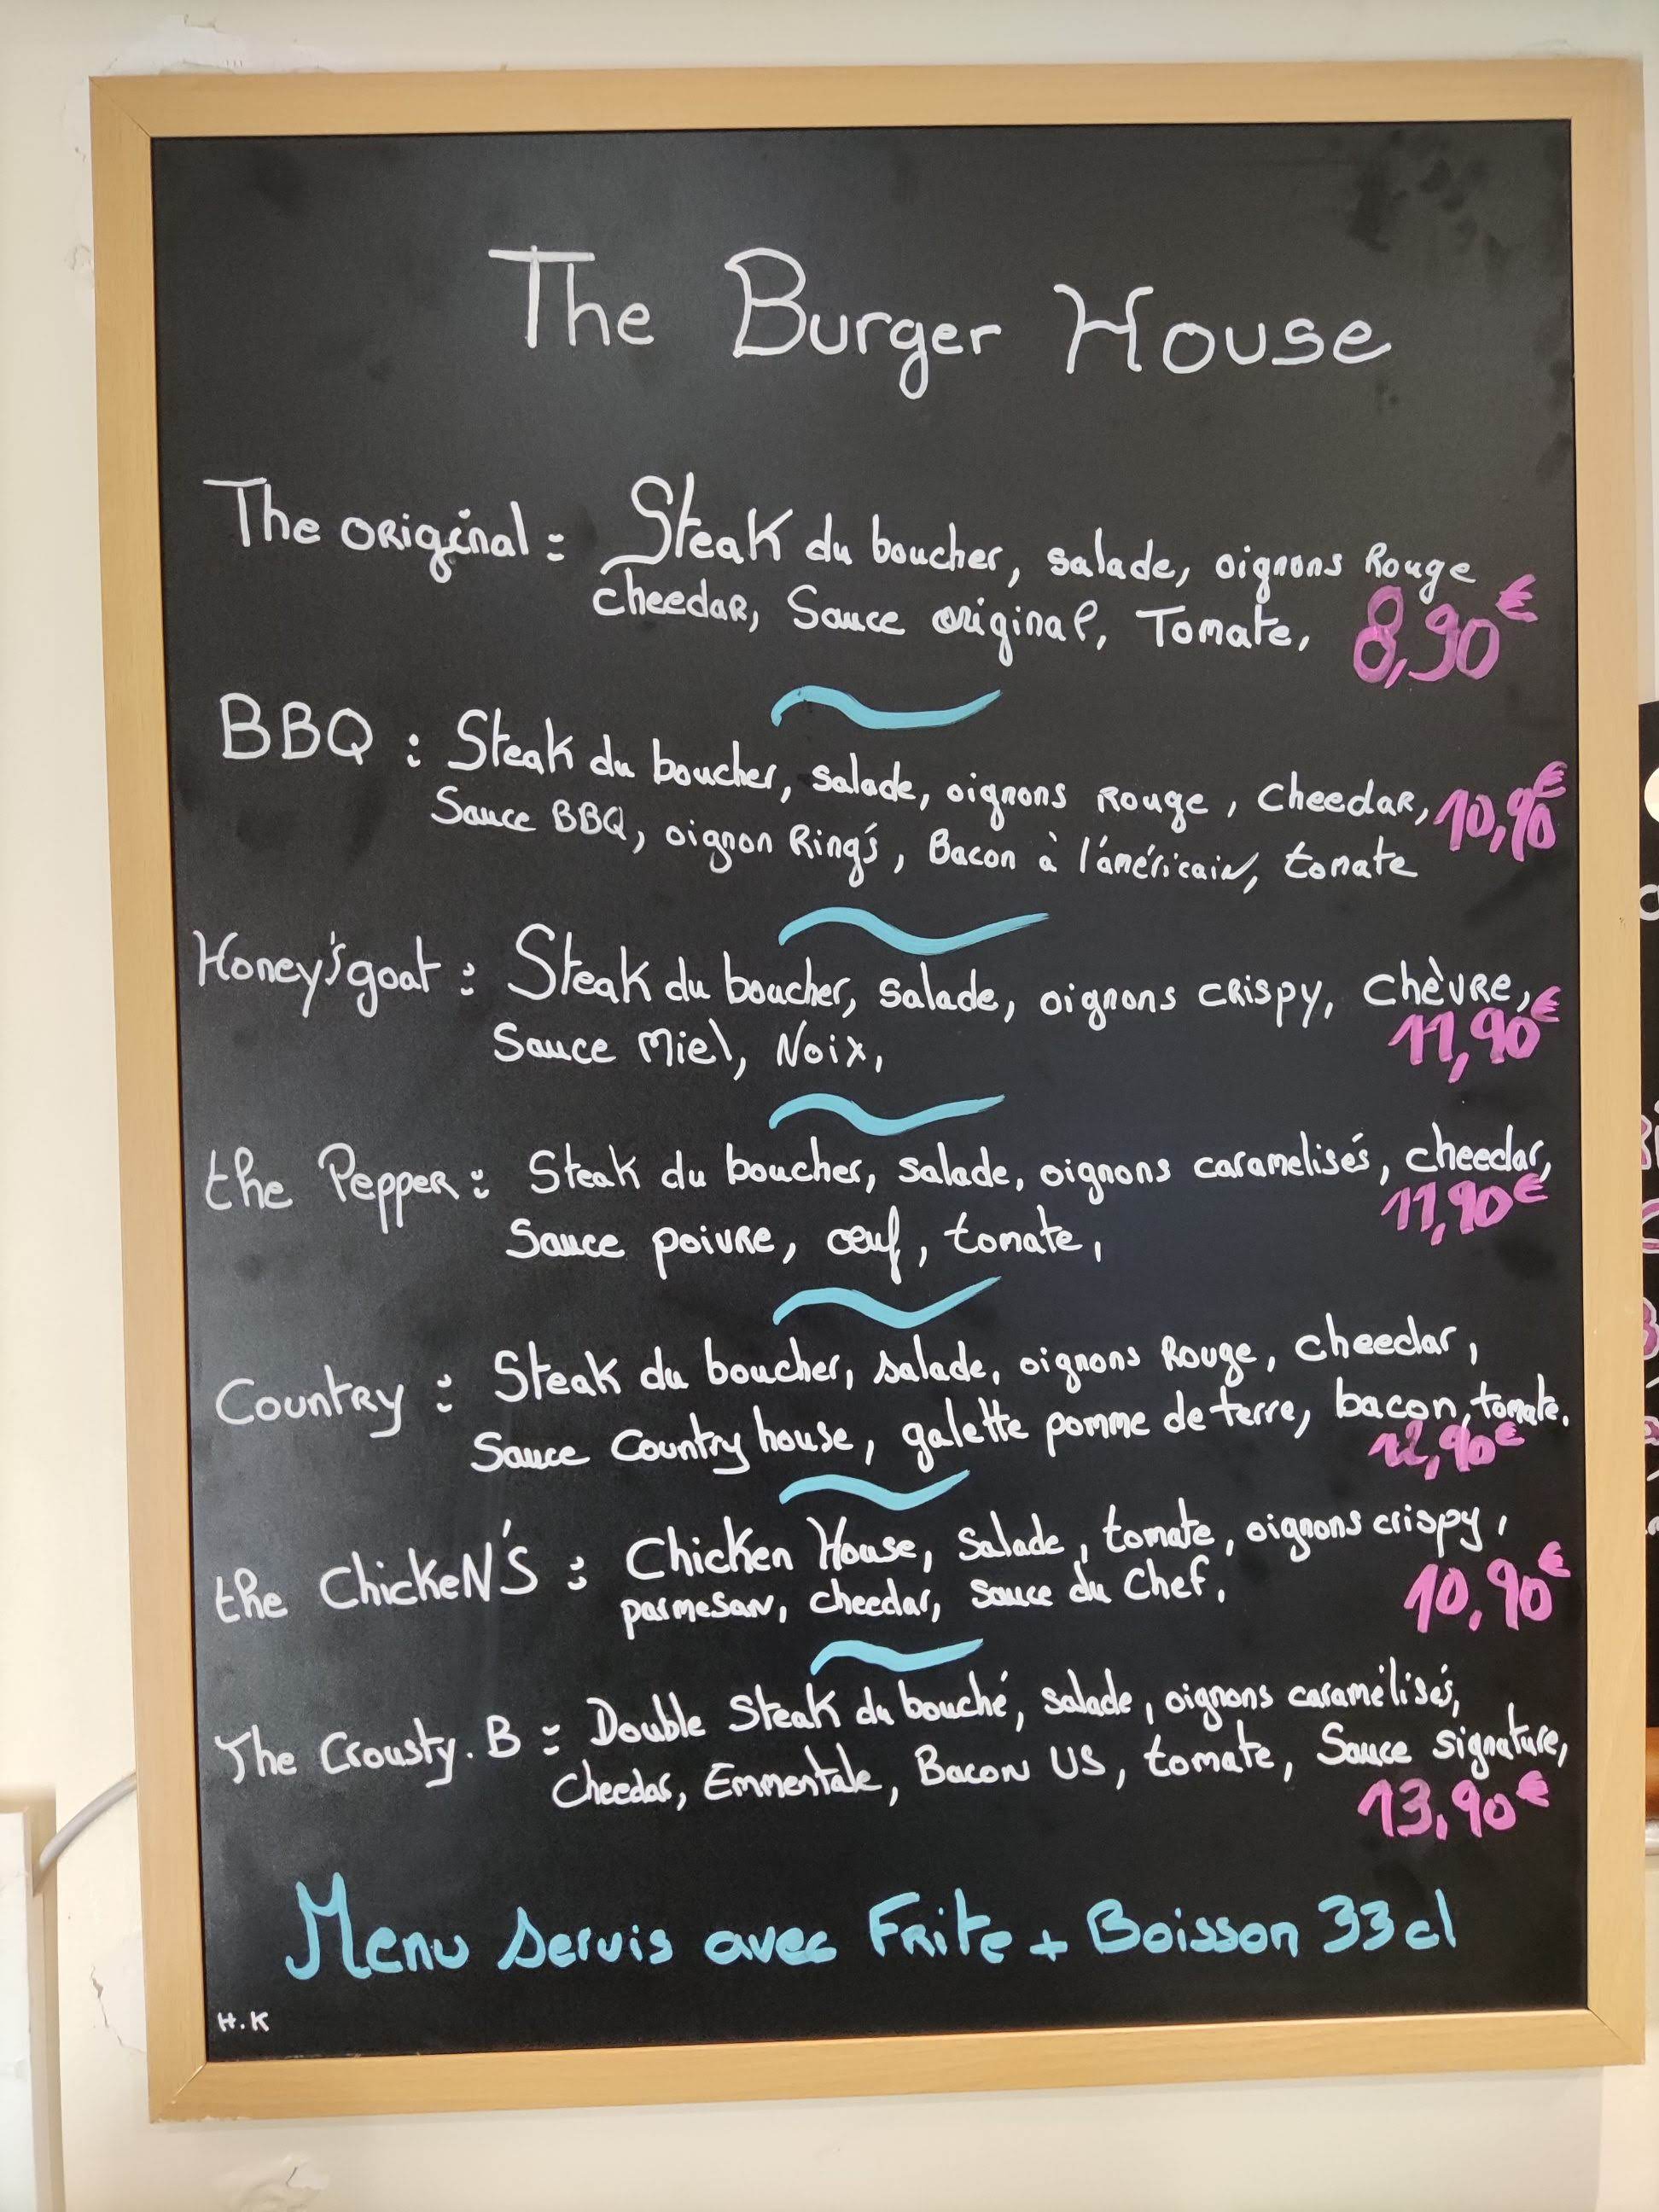 The Burger House
The original : Steak du boucher, salade, oignons Rouge
cheedar, Sauce original, Tomate, 8,90€
BBQ : Steak du boucher, salade, oignons Rouge, cheedar, 10,90€
Sauce BBQ, oignon Ring's, Bacon à l'américain, tomate
Honey'sgoat : Steak du boucher, salade, oignons crispy, chèvre,
Sauce Miel, Noix, 11,90€
the Pepper : Steak du boucher, salade, oignons caramelisés, cheedar,
Sauce poivre, œuf, tomate, 11,90€
Country : Steak du boucher, salade, oignons Rouge, cheedar,
Sauce Country house, galette pomme de terre, bacon, tomate.
12,90€
the Chicken'S : Chicken House, salade, tomate, oignons crispy,
parmesan, cheedar, sauce du Chef, 10,90€
The Crousty.B : Double Steak du bouché, salade, oignons caramélisés,
Cheedar, Emmentale, Bacon US, tomate, Sauce signature,
13,90€
Menu servis avec Frite + Boisson 33cl
H.K